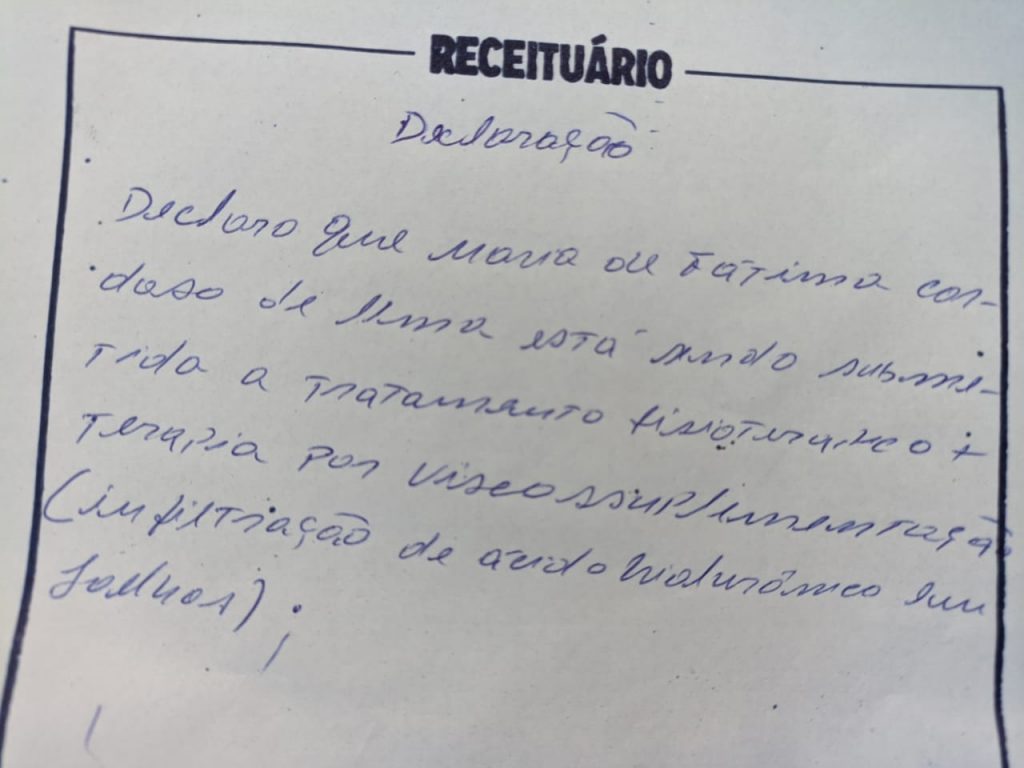 RECEITUÁRIO
Declaração
Declaro que Maria de Fátima Car-
doso de Lima está sendo subme-
tida a tratamento fisioterápico +
terapia por viscossuplementação
(infiltração de ácido hialurônico em
joelhos);